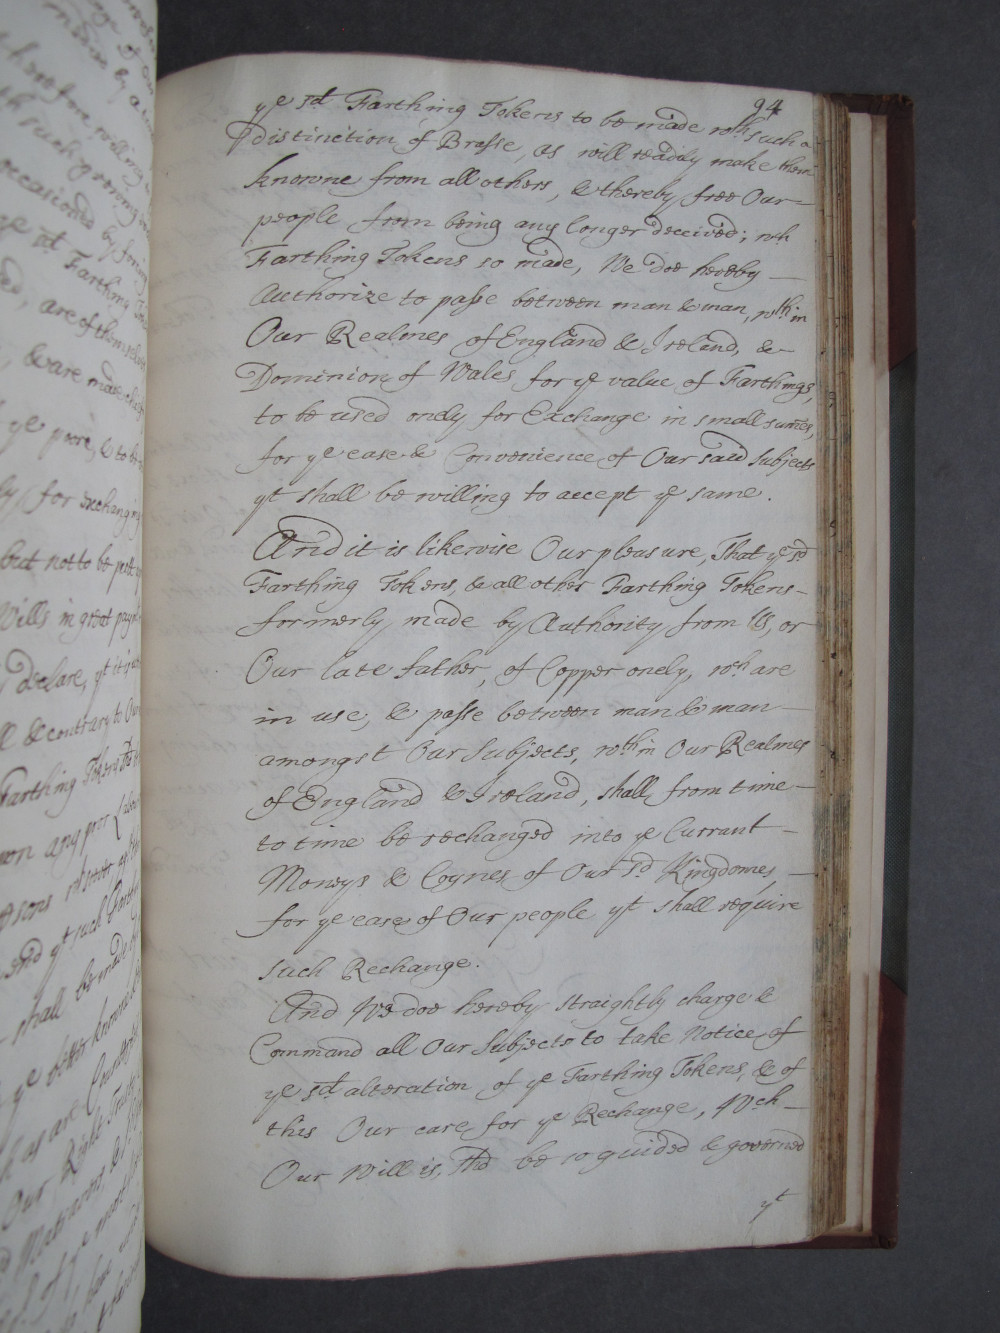 94
ye sd Farthing Tokens to be made wth such a
distinction of Brasse, as will readily make them
knowne from all others, & thereby free Our
people from being any longer deceived; wh
Farthing Tokens so made, We doe hereby
Authorize to passe between man & man, wthin
Our Realmes of England & Ireland, &
Dominion of Wales for ye value of Farthings,
to be used onely for Exchange in small sumes,
for ye ease & Convenience of Our said Subjects
yt shall be willing to accept ye same.
And it is likewise Our pleasure, That ye sd
Farthing Tokens, & all other Farthing Tokens
formerly made by Authority from Us, or
Our late father, of Copper onely, wch are
in use, & passe between man & man
amongst Our Subjects, wthin Our Realmes
of England & Ireland, shall from time
to time be rechanged into ye Currant
Moneys & Coynes of Our sd Kingdomes,
for ye ease of Our people yt shall require
such Rechange.
And We doe hereby straightly charge &
Command all Our Subjects to take Notice of
ye sd alteration of ye Farthing Tokens, & of
this Our care for ye Rechange, Wch
Our Will is, shd be so guided & governed
yt
occasioned by
ye sd Farthing
are of themselves
& are made
ye poore, & to be
for exchanging
but not to be
Wills in great
declare, yt it is
& contrary to Our
Farthing Tokens
upon any poor
and yt such
shall be made
ye better knowne
as are
Our Right Trusty
of ye